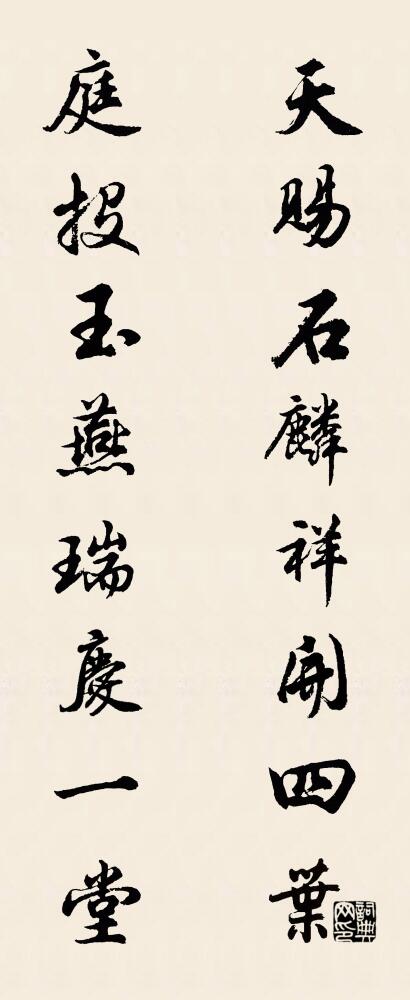 天賜石麟祥開四葉
庭投玉燕瑞慶一堂
詞典网印